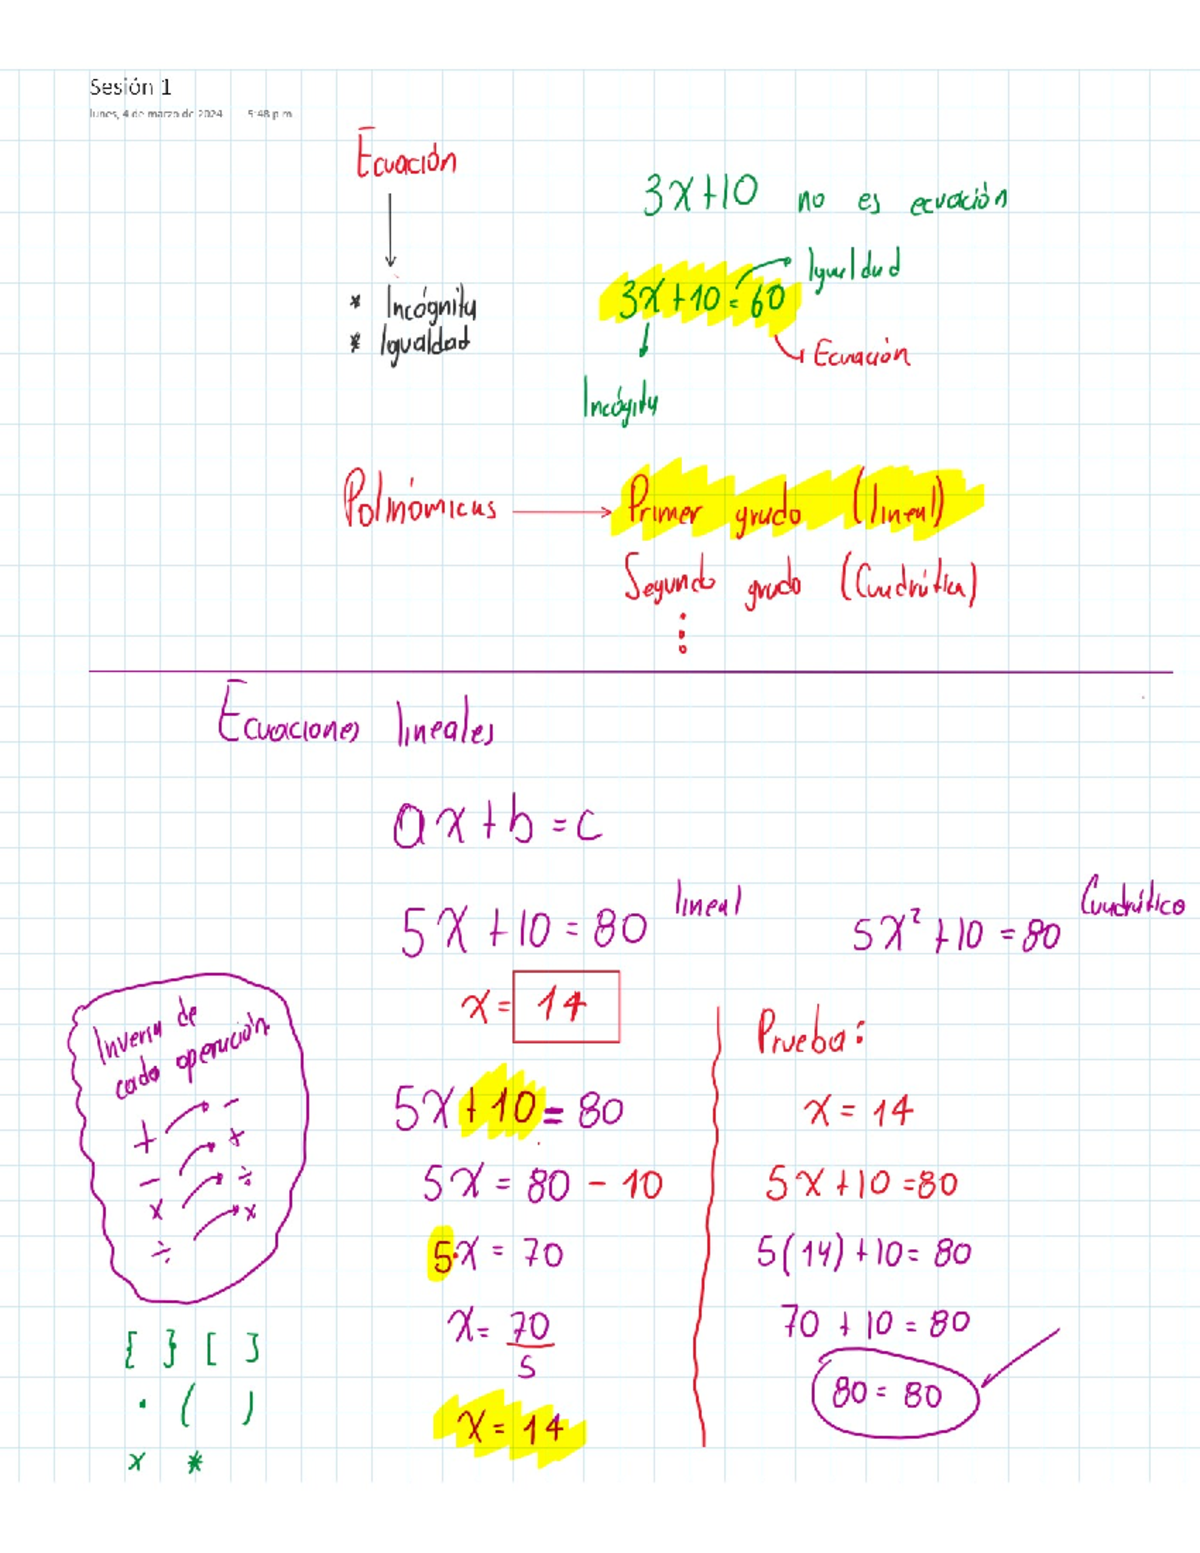 Sesión 1
lunes, 4 de marzo de 2024 5:48 p.m.
Ecuación
3x+10 no es ecuación
* Incógnita
* Igualdad
3x+10=60
Igualdad
Ecuación
Incógnita
Polinómicas
Primer grado (lineal)
Segundo grado (Cuadrática)
Ecuaciones lineales
ax+b=c
5x+10=80 lineal
5x²+10=80 Cuadrático
x= 14
Inversa de
cada operación
+ -
- +
x ÷
÷ x
{ } [ ]
· ( )
x *
5x+10=80
5x=80-10
5·x=70
x=70/5
x=14
Prueba:
x=14
5x+10=80
5(14)+10=80
70+10=80
80=80